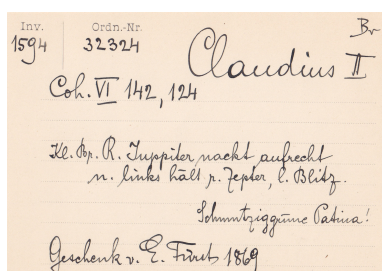 Inv. Ordn.-Nr. Br
1594 32324
Claudius II
Coh. VI 142, 124
Kl. Br. R. Juppiter nackt aufrecht
n. links hält r. Zepter, l. Blitz.
Schmutziggrüne Patina!
Geschenk v. E. Fürst 1869